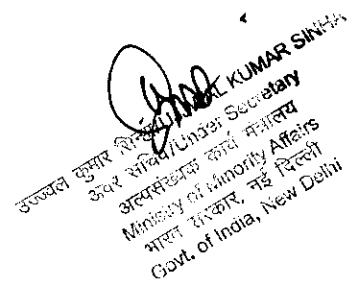 उज्ज्वल कुमार सिन्हा/ KUMAR SINHA
अवर सचिव/Under Secretary
अल्पसंख्यक कार्य मंत्रालय
Ministry of Minority Affairs
भारत सरकार, नई दिल्ली
Govt. of India, New Delhi